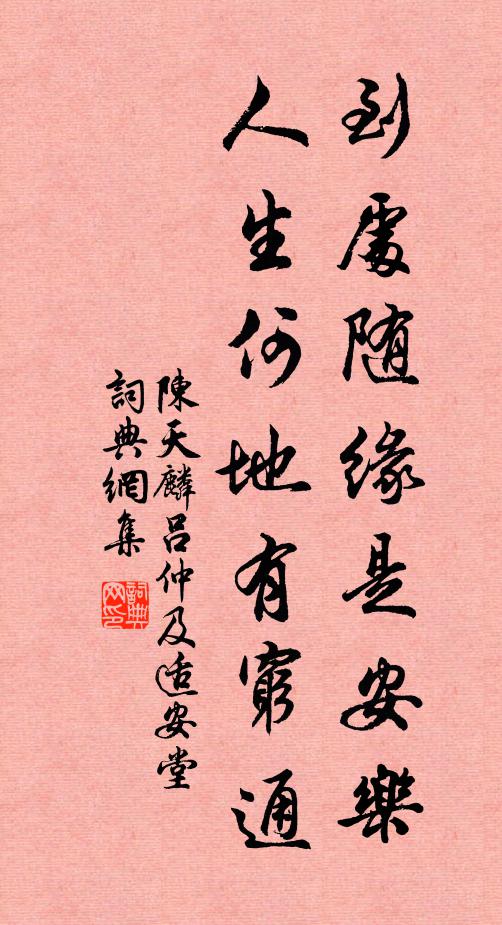 到處随緣是安樂
人生何地有窮通
陳天麟吕仲及适安堂
詞典網集
詞典網印